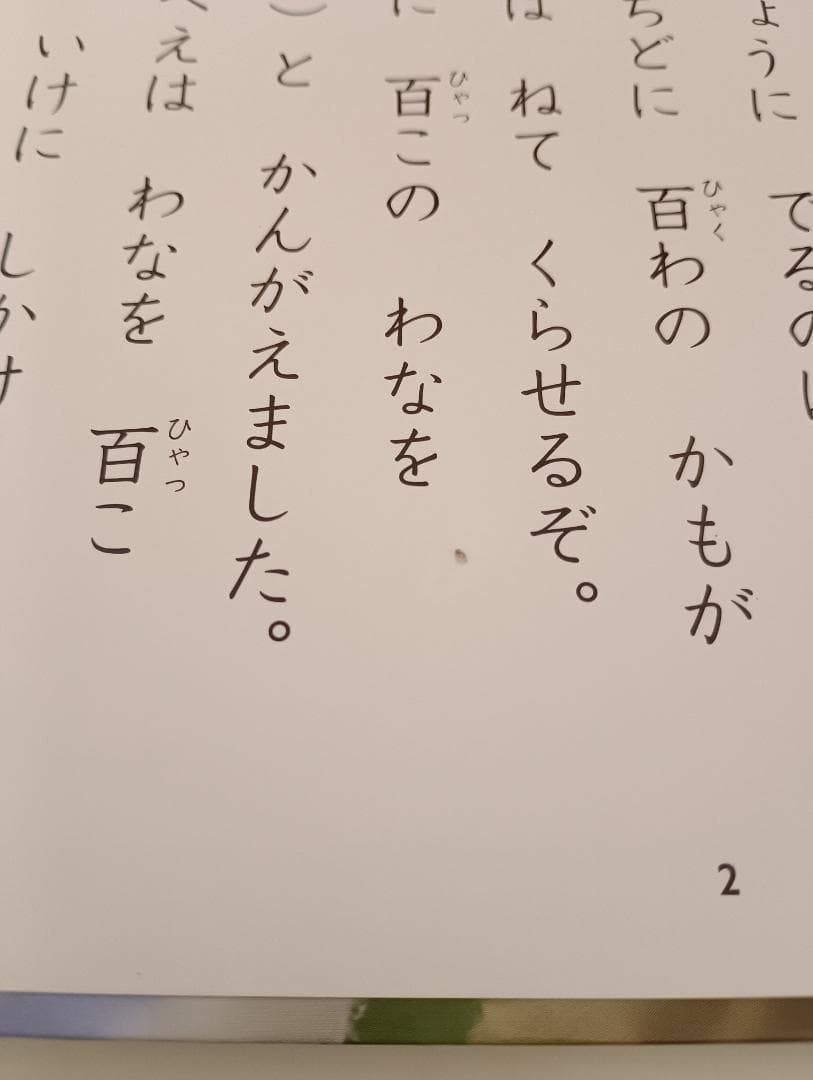 ように てるの
ちどに 百わの かもが
は ねて くらせるぞ。
に 百この わなを
）と かんがえました。
べえは わなを 百こ
いけに しかけ
ひゃく
ひゃっ
ひゃっ
2